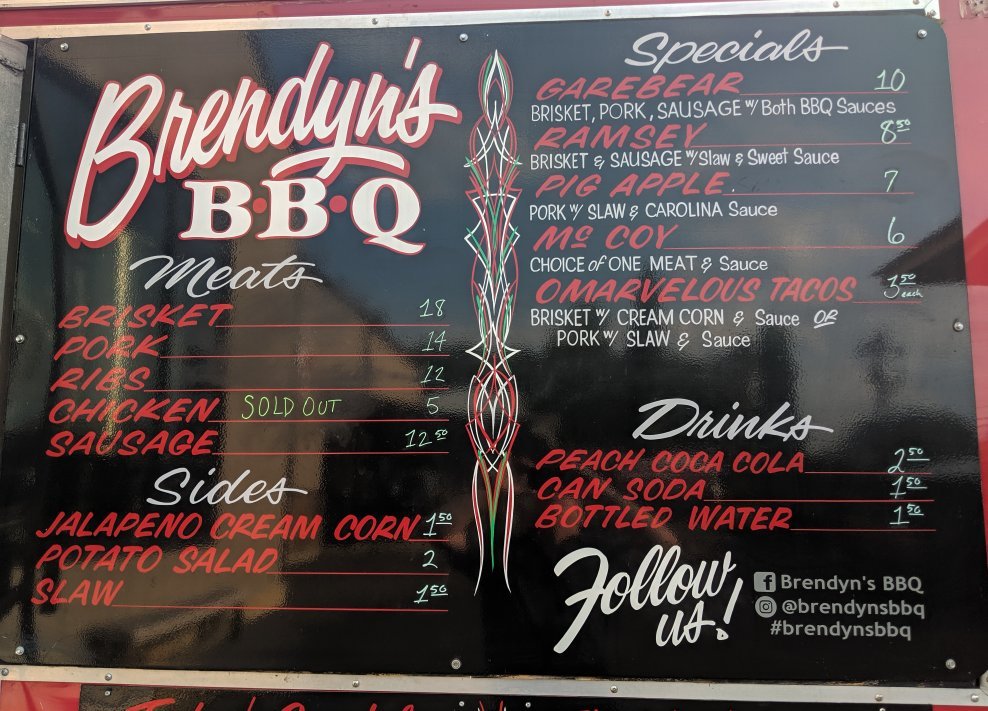 Brendyn's
B·B·Q
Meats
BRISKET 18
PORK 14
RIBS 12
CHICKEN SOLD OUT 5
SAUSAGE 12⁵⁰
Sides
JALAPENO CREAM CORN 1⁵⁰
POTATO SALAD 2
SLAW 1⁵⁰
Specials
GAREBEAR 10
BRISKET, PORK, SAUSAGE W/ Both BBQ Sauces
RAMSEY 8⁵⁰
BRISKET & SAUSAGE W/ Slaw & Sweet Sauce
PIG APPLE 7
PORK W/ SLAW & CAROLINA Sauce
Mc COY 6
CHOICE of ONE MEAT & Sauce
OMARVELOUS TACOS 3⁵⁰ each
BRISKET W/ CREAM CORN & Sauce OR
PORK W/ SLAW & Sauce
Drinks
PEACH COCA COLA 2⁵⁰
CAN SODA 1⁵⁰
BOTTLED WATER 1⁵⁰
Follow
us!
f Brendyn's BBQ
@brendynsbbq
#brendynsbbq